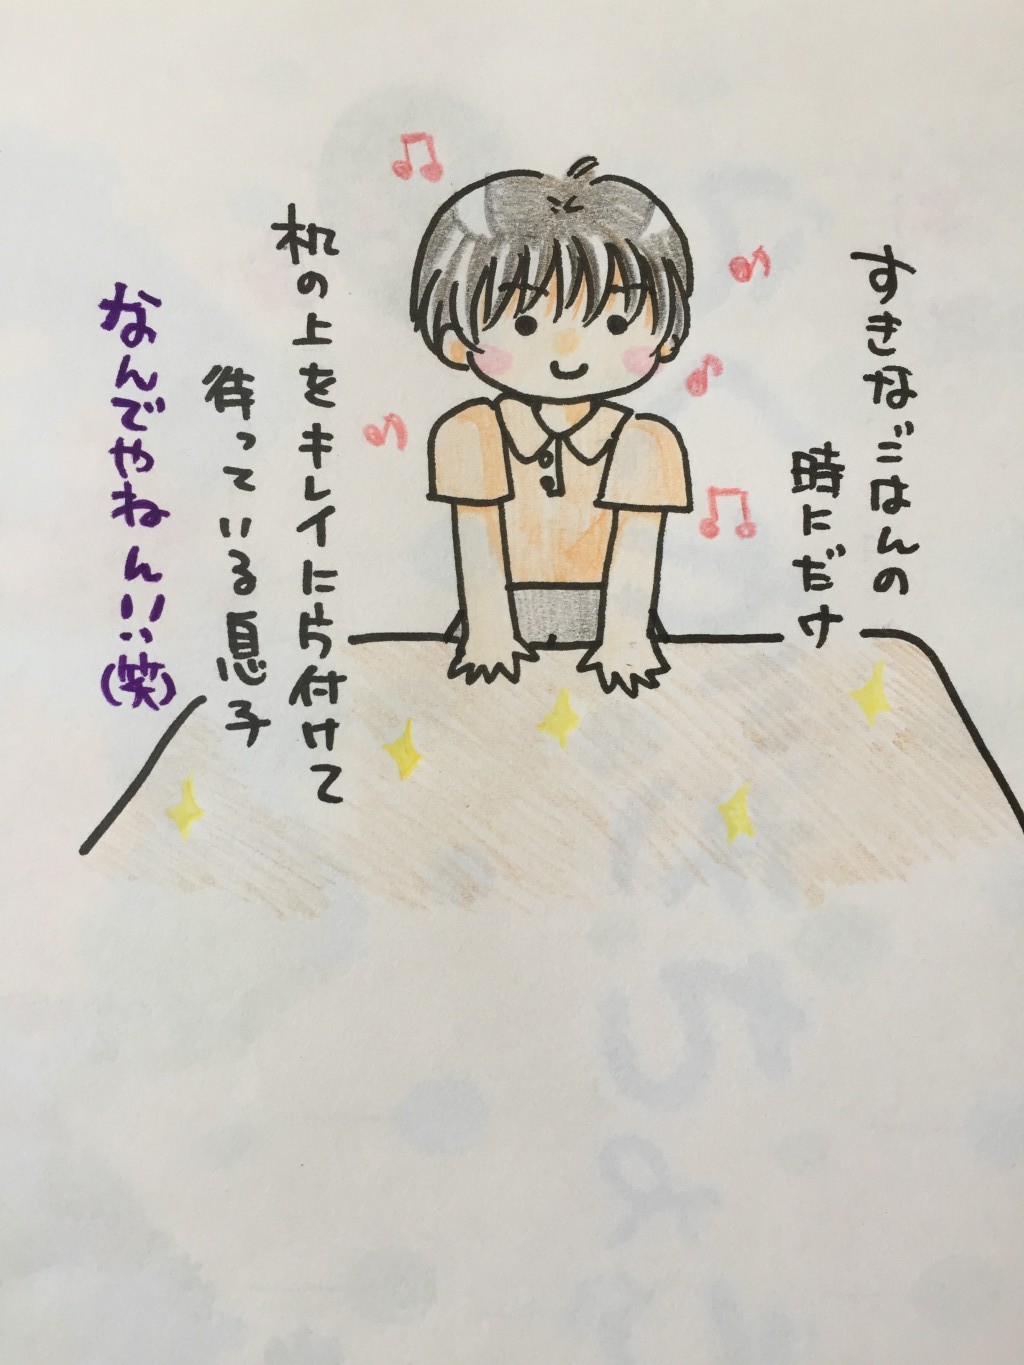 すきなごはんの
時にだけ
机の上をキレイに片付けて
待っている息子
なんでやねん!!(笑)